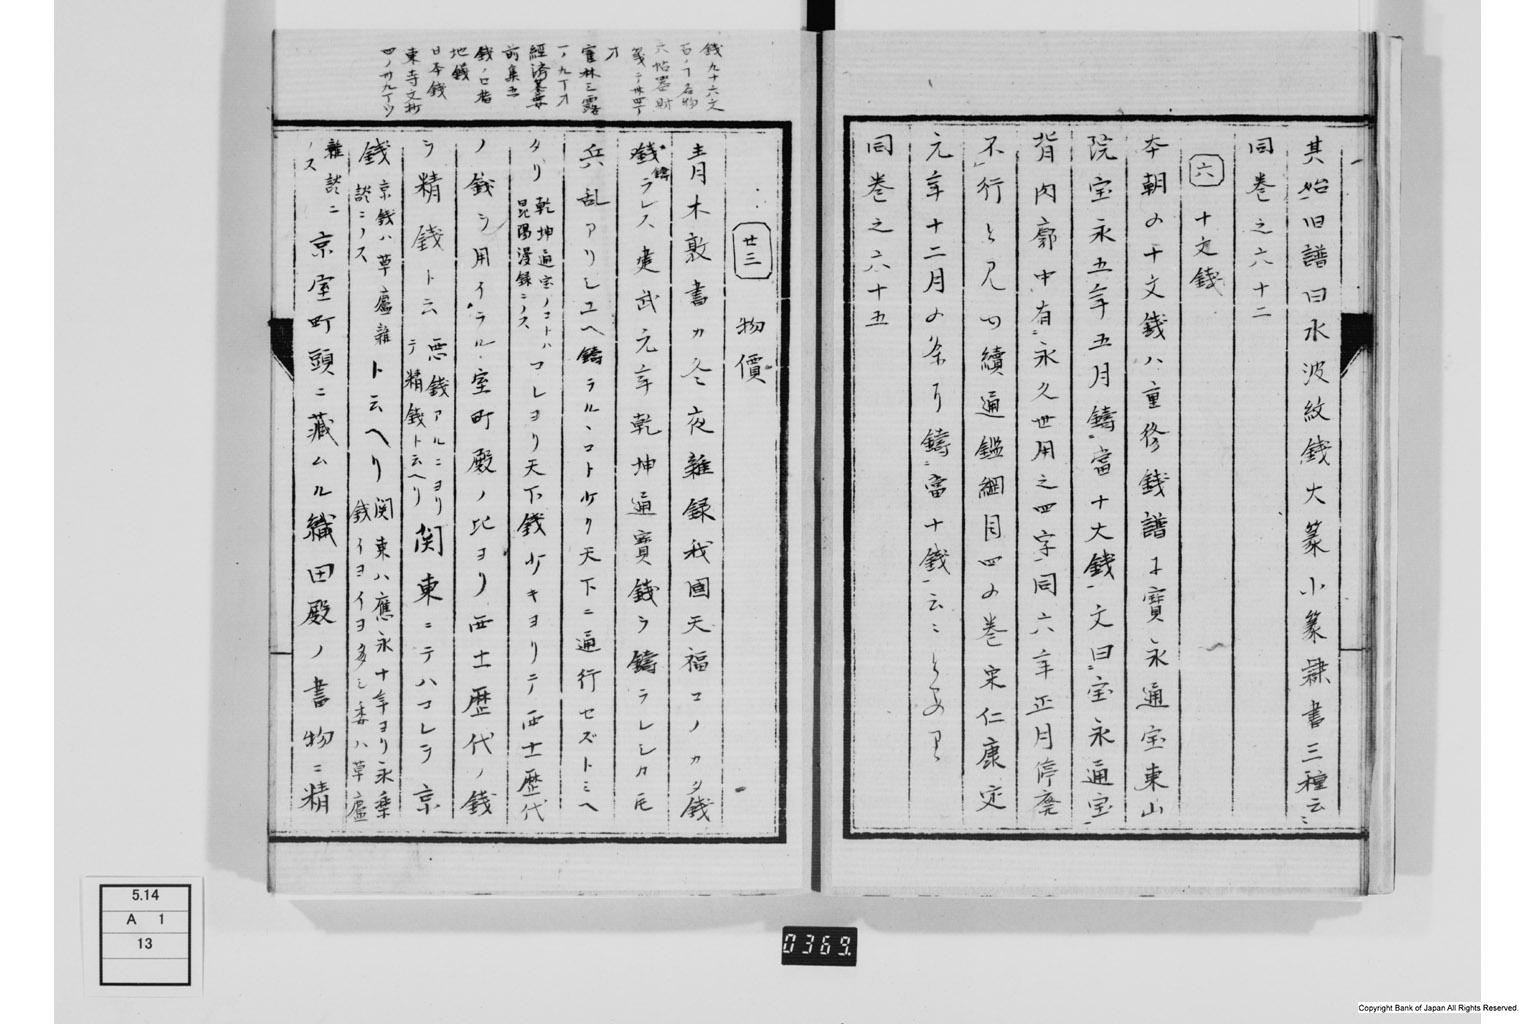 其始旧譜曰水波紋銭大篆小篆隷書三種云〻
同巻之六十二
六 十文銭
本朝の十文銭ハ重修銭譜に寳永通宝東山
院宝永五年五月鋳當十大銭文曰宝永通宝
背内廓中有永久世用之四字同六年正月停廃
不行と見ゆ續通鑑綱目四の巻宋仁康定
元年十二月の条に鋳當十銭云〻とあり
同巻之六十五
銭九十六文
官林三露
一ノ九丁オ
經済
前集
地銭
日本銭
東寺文
四ノ卅九丁ウ
廿三 物價
青木敦書カ冬夜雜録我國天福コノカタ銭
鋳ラレス建武元年乾坤通寳銭ヲ鋳ラレシカ𪜈
兵乱アリシユヘ鋳ラルヽコト少ク天下ニ通行セズトミヘ
タリ 乾坤通宝ノコトハ昆陽漫録ニノス コレヨリ天下銭少キヨリテ西土歴代
ノ銭ヲ用イラル室町殿ノ比ヨリ西土歴代ノ銭
ヲ精銭ト云 悪銭アルニヨリテ精銭ト云ヘリ 関東ニテハコレヲ京
銭 京銭ハ草廬雜談ニノス ト云ヘリ 関東ハ應永十年ヨリ永樂銭イヨイヨ多シ委ハ草廬
雜談ニノス 京室町頭ニ藏ムル織田殿ノ書物ニ精
5.14
A 1
13
0369
Copyright Bank of Japan All Rights Reserved.